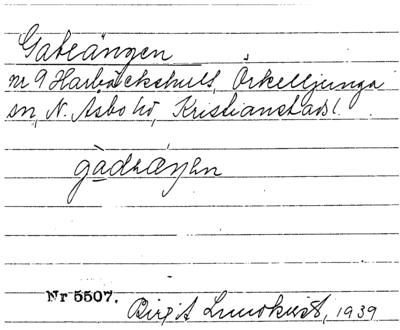 Gateängen
nr 9 Harbäckshult, Örkelljunga
sn, N. Åsbo hd, Kristianstads l.
gàdǝæŋən
Nr 5507.
Birgit Lundkvist, 1939